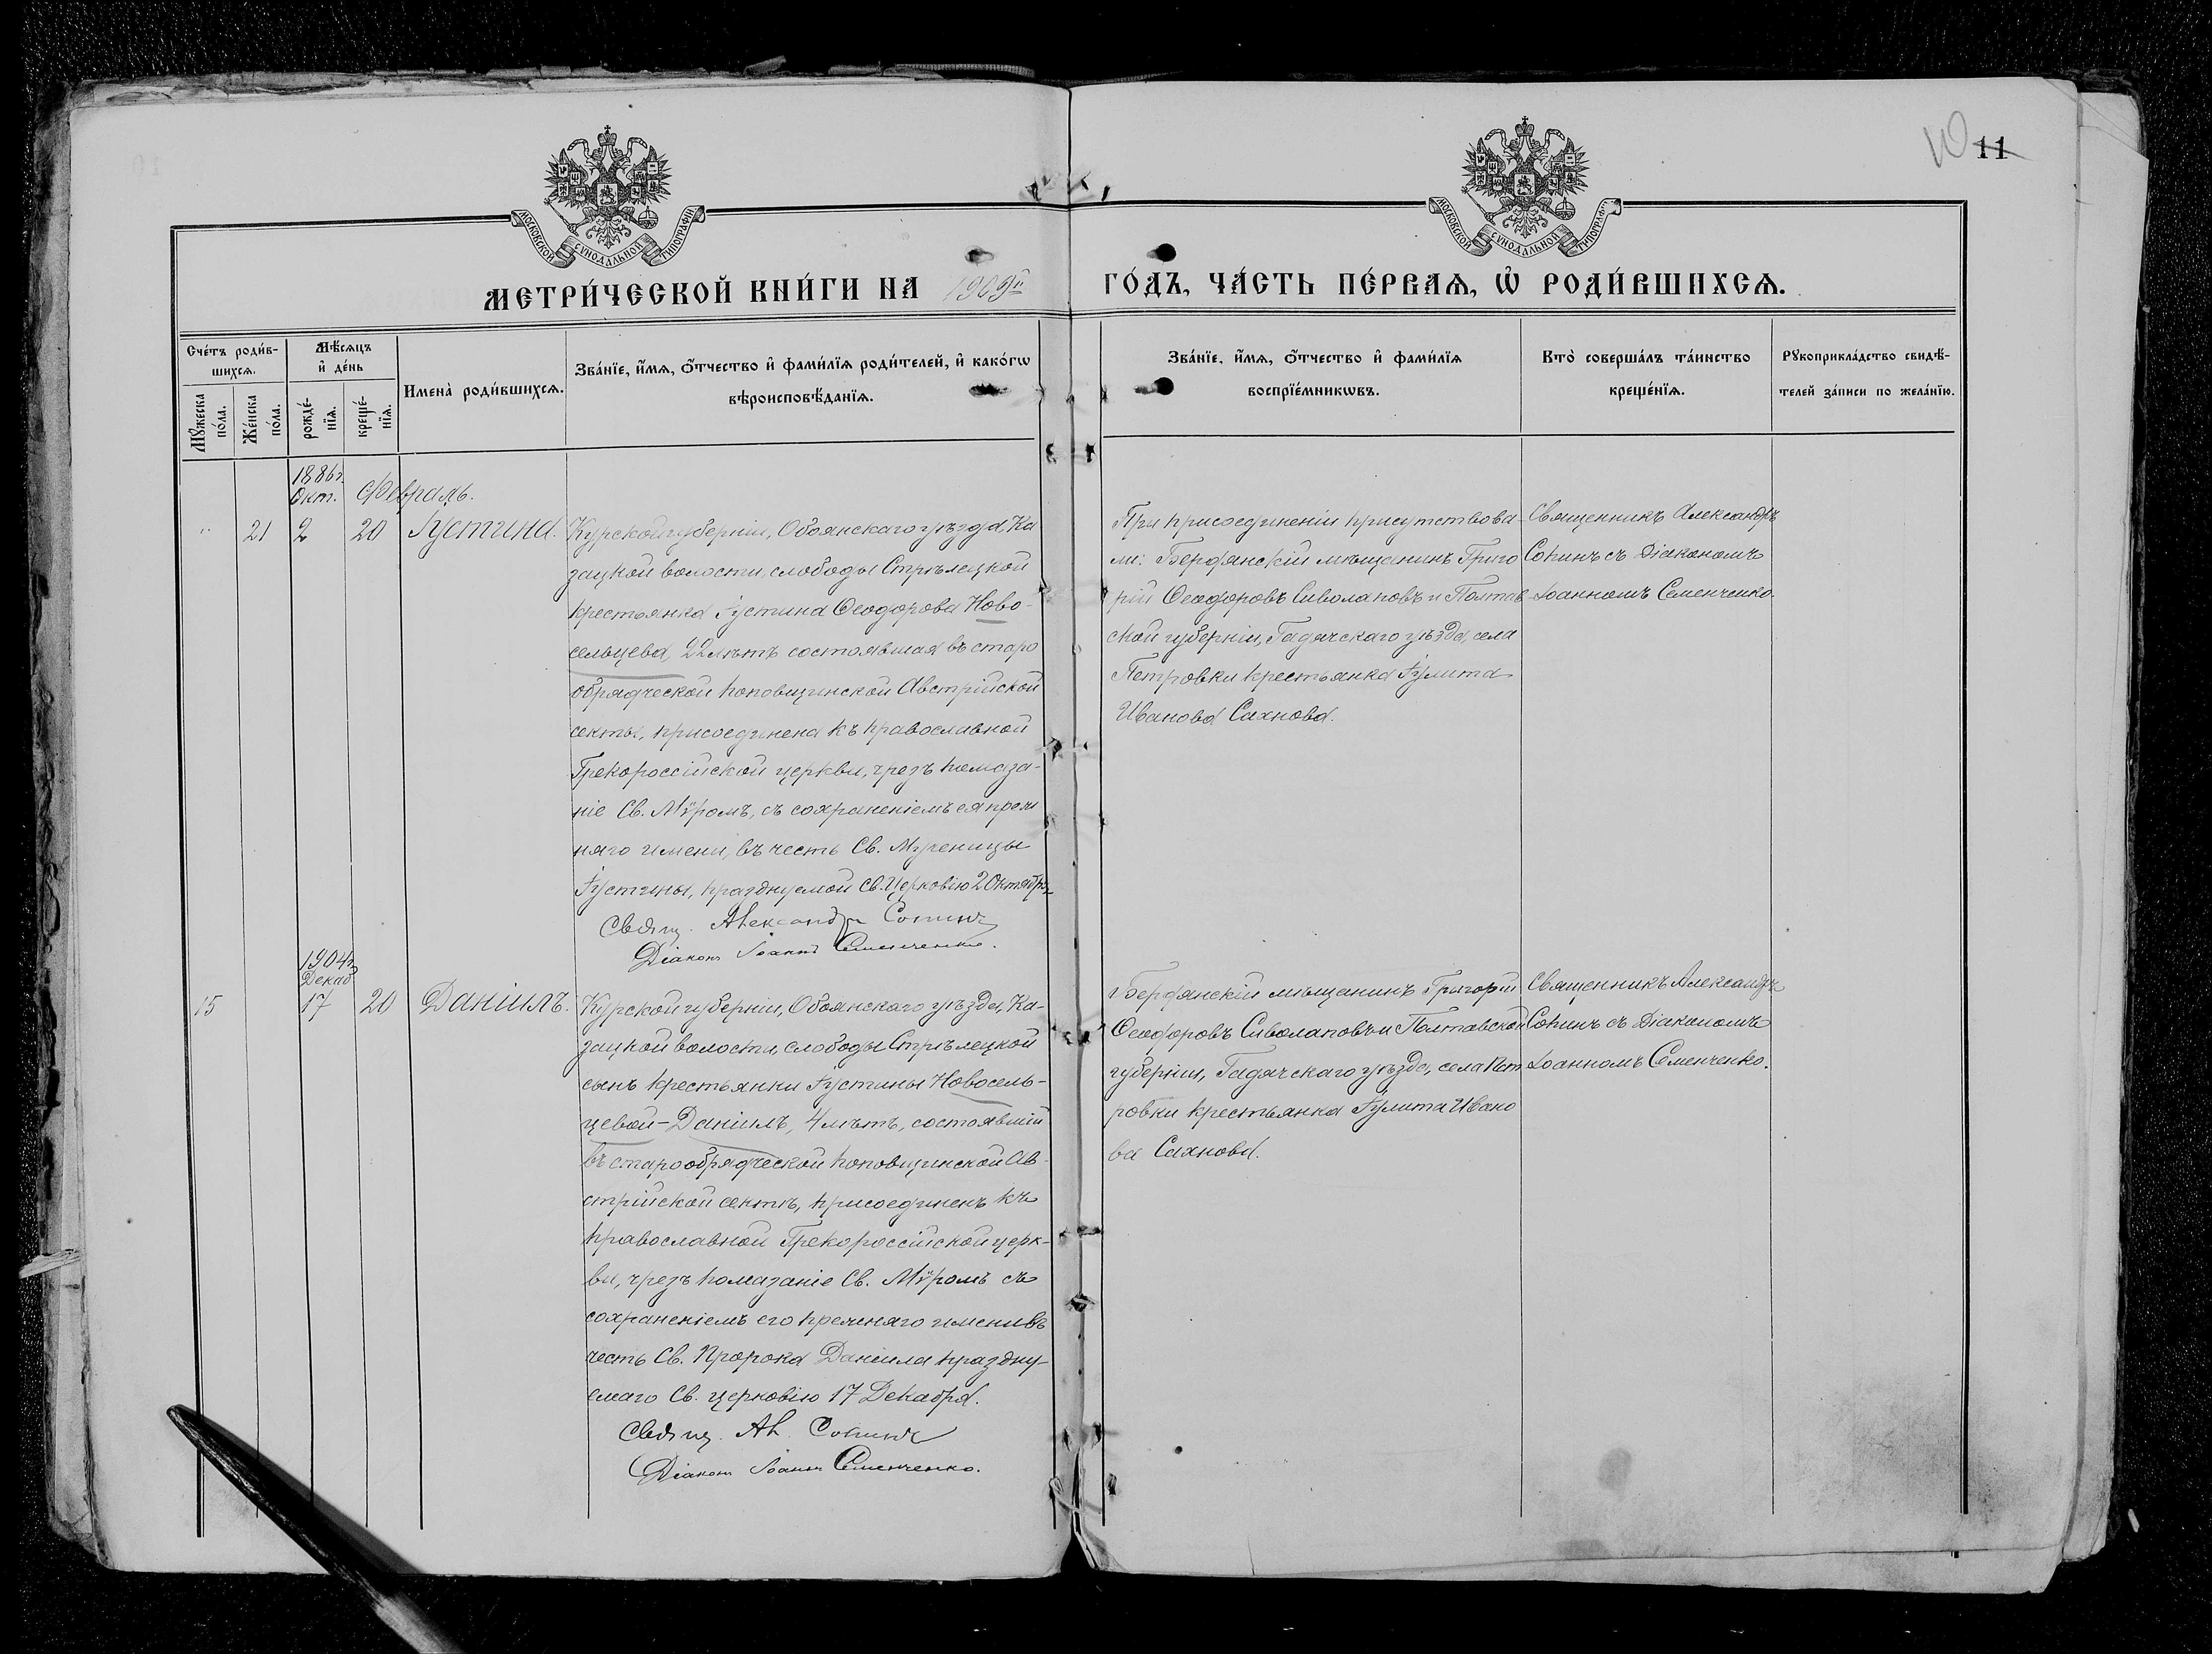 11
10
МОСКОВСКОЙ СѴНОДАЛЬНОЙ ТИПОГРАФІИ
МОСКОВСКОЙ СѴНОДАЛЬНОЙ ТИПОГРАФІИ
МЕТРИ́ЧЕСКОЙ КНИ́ГИ НА 1909й ГО́ДЪ, ЧА́СТЬ ПЕ́РВАѦ, Ѡ҆ РОДИ́ВШИХСѦ.
Сче́тъ роди́в-
шихсѧ.
Мꙋ́жеска по́ла.
Же́нска по́ла.
Мѣ́сѧцъ
и҆ де́нь
рожде́-
нїѧ.
креще́-
нїѧ.
Имена̀ роди́вшихсѧ.
Зва́нїе, и҆́мѧ, ѻ҆́тчество и҆ фами́лїѧ роди́телей, и҆ како́гѡ
вѣроисповѣ́данїѧ.
Зва́нїе, и҆́мѧ, ѻ҆́тчество и҆ фами́лїѧ
воспрїе́мникѡвъ.
Кто̀ соверша́лъ та́инство
креще́нїѧ.
Рꙋкоприкла́дство свидѣ́-
телей за́писи по жела́нїю.
1886 г.
Окт. Февраль.
" 21 2 20 Іустина.
Курской губерніи, Обоянскаго уѣзда, Ка
зацкой волости, слободы Стрѣлецкой
крестьянка Іустина Ѳеодорова Ново-
сельцева, 22 лѣтъ состоявшая въ старо
обрядческой поповщинской Австрійской
секты, присоединена къ православной
Грекороссійской церкви, чрезъ помаза-
ніе Св. Мѵромъ, съ сохраненіемъ ея преж
няго имени, въ честь Св. Мученицы
Іустины, празднуемой Св. Церковію 2 Октября
Свящ. Александръ Сопинъ
Діаконъ Іоаннъ Семенченко.
При присоединеніи присутствова-
ли: Бердянскій мѣщанинъ Григо
рій Ѳеодоровъ Сиволаповъ и Полтав
ской губерніи, Гадячскаго уѣзда, села
Петровки крестьянка Іулита
Иванова Сахнова.
Священникъ Александръ
Сопинъ съ Діакономъ
Іоанномъ Семенченко.
1904 г.
Декаб
15 17 20 Даніилъ.
Курской губерніи, Обоянскаго уѣзда, Ка-
зацкой волости, слободы Стрѣлецкой
сынъ крестьянки Іустины Новосель-
цевой - Даніилъ, 4 лѣтъ, состоявшій
въ старообрядческой поповщинской Ав-
стрійской сектѣ, присоединенъ къ
православной Грекороссійской церк-
ви, чрезъ помазаніе Св. Мѵромъ съ
сохраненіемъ его прежняго имени въ
честь Св. Пророка Даніила праздну-
емаго Св. церковію 17 Декабря.
Свящ. Ал. Сопинъ
Діаконъ Іоаннъ Семенченко.
Бердянскій мѣщанинъ Григорій
Ѳеодоровъ Сиволаповъ и Полтавской
губерніи, Гадячскаго уѣзда, села Пет
ровки крестьянка Іулита Ивано
ва Сахнова.
Священникъ Александръ
Сопинъ съ Діакономъ
Іоанномъ Семенченко.